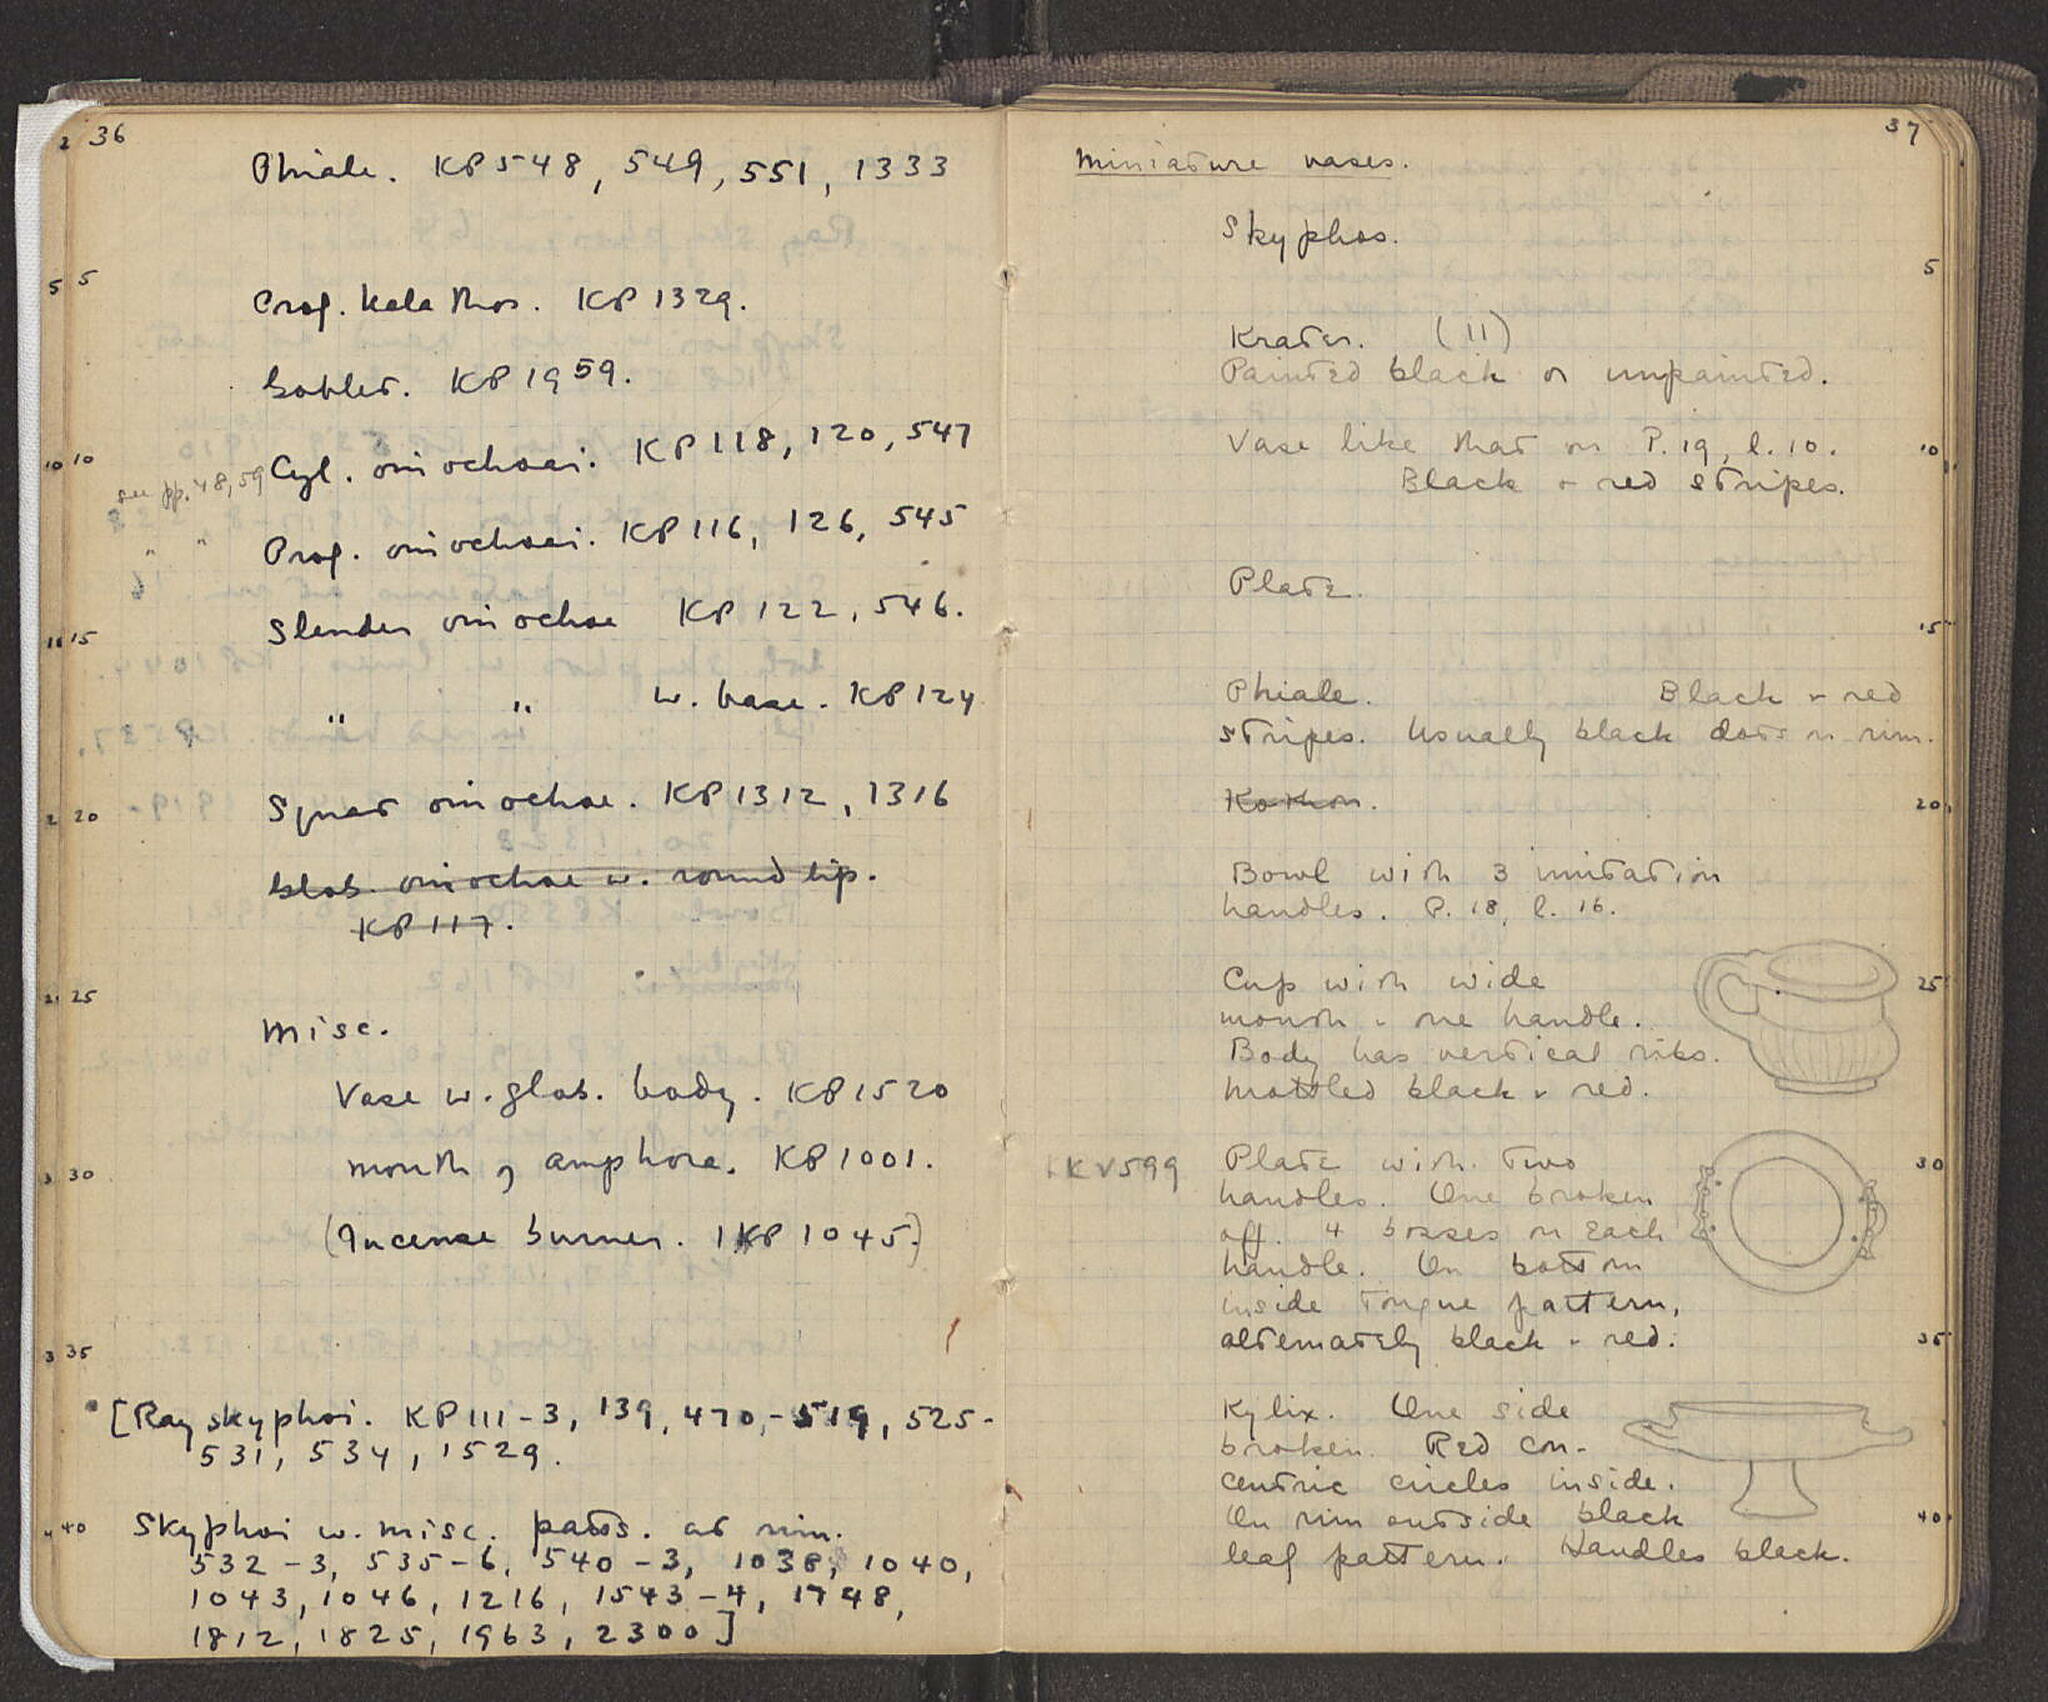 36
Phiale. KP 548, 549, 551, 1333
Prof. kalathos. KP 1329.
Goblet. KP 1959.
see pp. 48, 59 Cyl. oinochoai. KP 118, 120, 547
" " Prof. oinochoai. KP 116, 126, 545
Slender oinochoe KP 122, 546.
" " w. base. KP 124
Squat oinochoe. KP 1312, 1316
Glob. oinochoe w. round lip.
KP 117.
Misc.
Vase w. glob. body. KP 1520
Mouth of amphora. KP 1001.
(Incense burner. KP 1045.)
[Ray skyphoi. KP 111-3, 139, 470-519, 525-
531, 534, 1529.
Skyphoi w. misc. patts. at rim.
532-3, 535-6, 540-3, 1038, 1040,
1043, 1046, 1216, 1543-4, 1748,
1812, 1825, 1963, 2300]
5
10
15
20
25
30
35
40
37
Miniature vases.
Skyphos.
Krater. (11)
Painted black or unpainted.
Vase like that on P. 19, l. 10.
Black & red stripes.
Plate.
Phiale. Black & red
stripes. Usually black dots on rim.
Kothon.
Bowl with 3 imitation
handles. P. 18, l. 16.
Cup with wide
mouth & one handle.
Body has vertical ribs.
Mottled black & red.
KV599 Plate with two
handles. One broken
off. 4 bosses on each
handle. On bottom
inside tongue pattern,
alternately black & red.
Kylix. One side
broken. Red con-
centric circles inside.
On rim outside black
leaf pattern. Handles black.
5
10
15
20
25
30
35
40